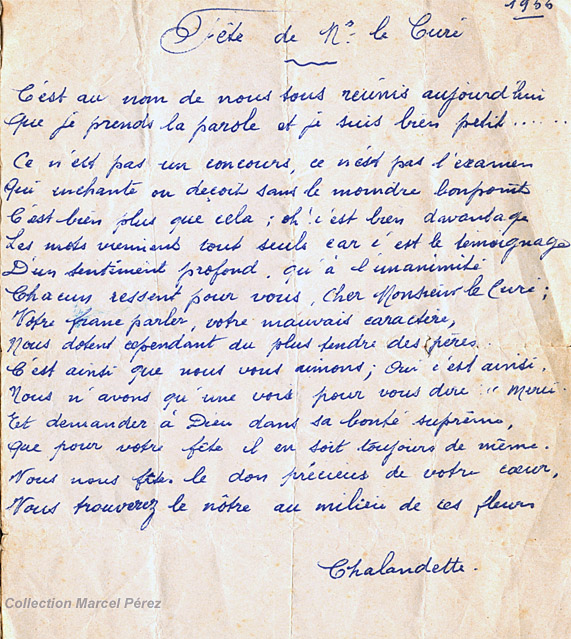 1966
Fête de Mr le Curé
C'est au nom de nous tous réunis aujourd'hui
Que je prends la parole et je suis bien petit......
Ce n'est pas un concours, ce n'est pas l'examen
Qui enchante ou deçoit sans le moindre bonpoint
C'est bien plus que cela ; oh ! c'est bien davantage
Les mots viennent tout seuls car c'est le témoignage
D'un sentiment profond, qu'à l'unanimité
Chacun ressent pour vous, Cher Monsieur le Curé ;
Votre franc parler, votre mauvais caractère,
Nous dotent cependant du plus tendre des pères..
C'est ainsi que nous vous aimons ; Oui c'est ainsi.
Nous n'avons qu'une voix pour vous dire " Merci
Et demander à Dieu dans sa bonté suprême,
Que pour votre fête il en soit toujours de même.
Vous nous fêtes le don précieux de votre cœur,
Vous trouverez le nôtre au milieu de ces fleurs
Chalandette.
Collection Marcel Pérez